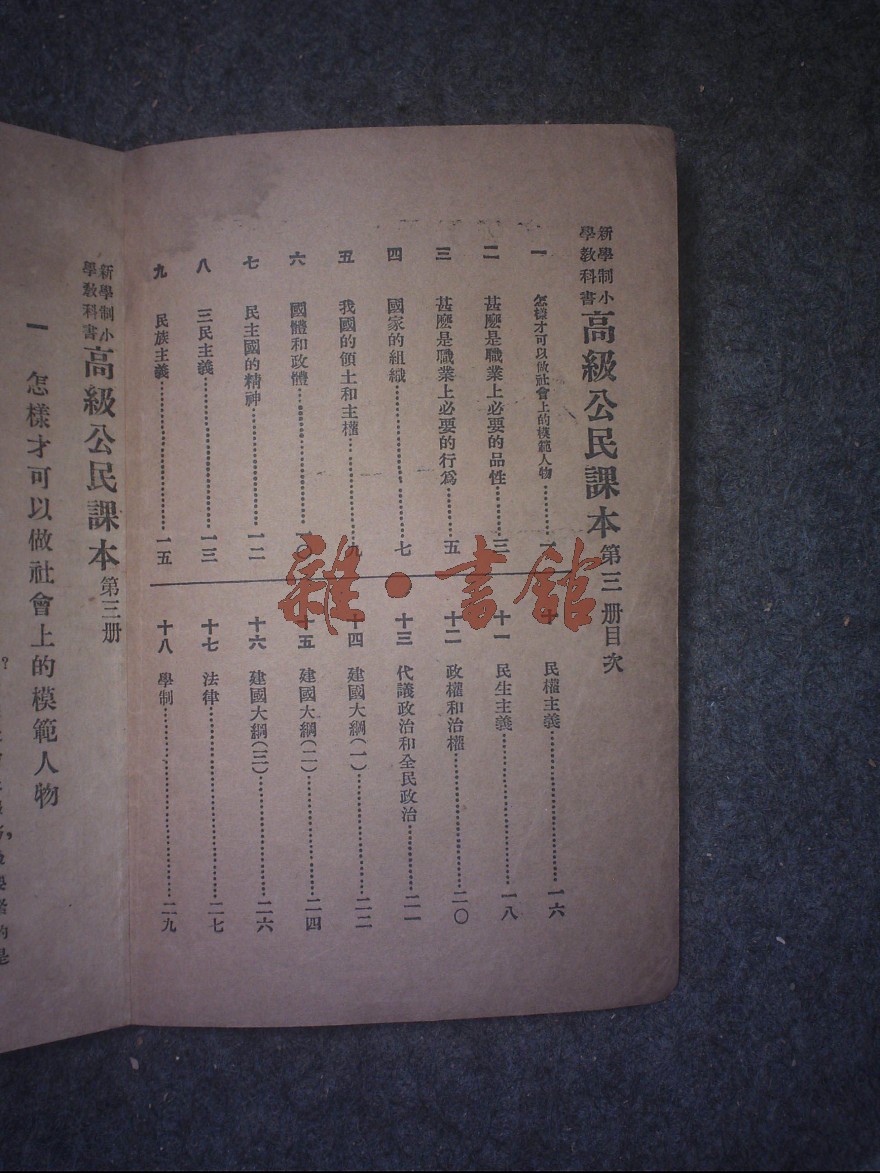 新學制小
學教科書
高級公民課本 第三册目次
一 怎樣才可以做社會上的模範人物…………一
二 甚麽是職業上必要的品性…………三
三 甚麽是職業上必要的行爲…………五
四 國家的組織…………七
五 我國的領土和主權…………九
六 國體和政體…………
七 民主國的精神…………一二
八 三民主義…………一三
九 民族主義…………一五
十 民權主義…………一六
十一 民生主義…………一八
十二 政權和治權…………二〇
十三 代議政治和全民政治…………二一
十四 建國大綱(一)…………二二
十五 建國大綱(二)…………二四
十六 建國大綱(三)…………二六
十七 法律…………二七
十八 學制…………二九
雜·書館
新學制小
學教科書
高級公民課本 第三册
一 怎樣才可以做社會上的模範人物